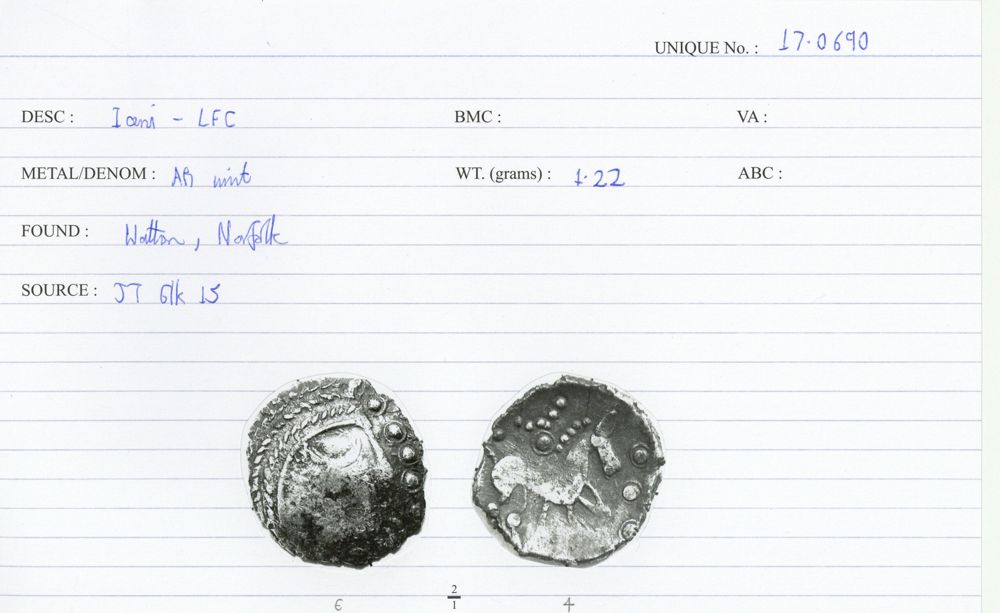 UNIQUE No. : 17.0690
DESC : Iceni - LFC BMC : VA :
METAL/DENOM : AR unit WT. (grams) : 1.22 ABC :
FOUND : Watton, Norfolk
SOURCE : JT Blk 15
6 2/1 4